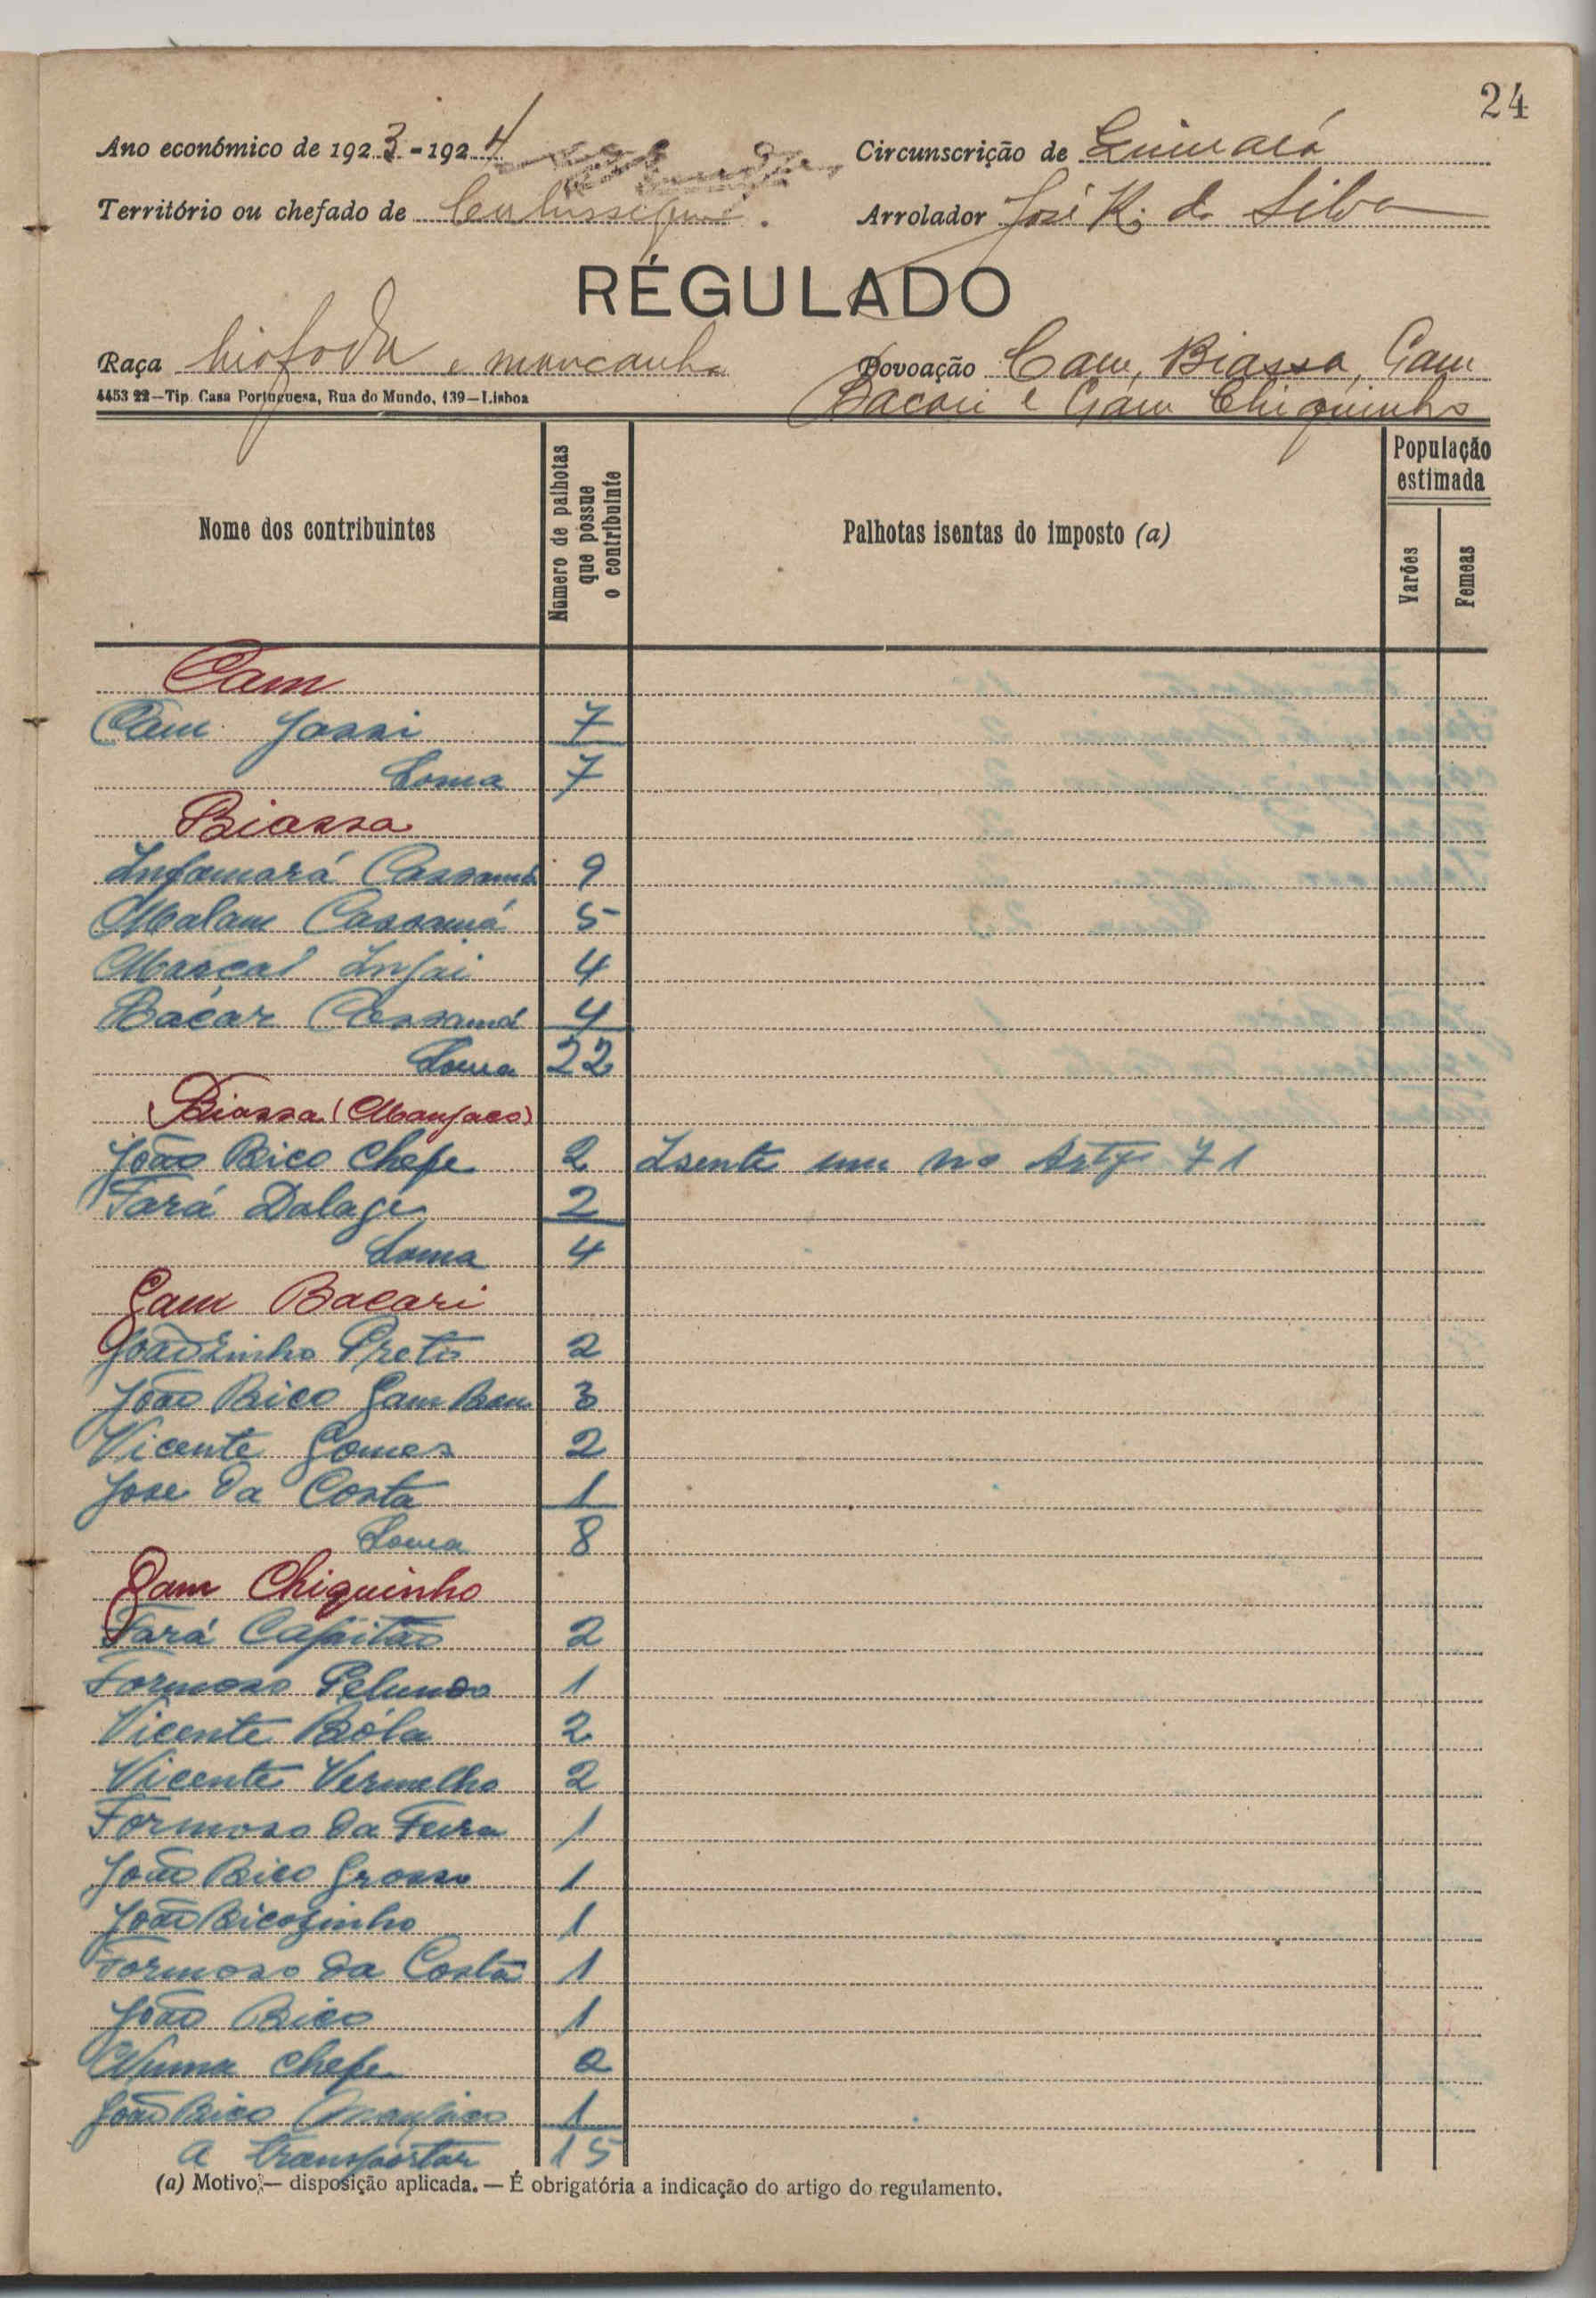 24
Ano económico de 1923-1924
Circunscrição de
Território ou chefado de
Arrolador José R. da Silva
RÉGULADO
Raça biafada e mancanha
Povoação Cam, Biassa, Gam
Bacari e Gam Chiquinho
4453 22—Tip. Casa Portuguesa, Rua do Mundo, 139—Lisboa
Nome dos contribuintes
Número de palhotas que possue o contribuinte
Palhotas isentas do imposto (a)
População estimada
Varões
Femeas
Cam
Cam Jassi 7
Soma 7
Biassa
Infamará Cassamá 9
Malam Cassamá 5
Marçal Injai 4
Bacar Cassamá 4
Soma 22
Biassa (Manjaco)
João Bico Chefe 2 Isente um no Artº 71
Fará Dalage 2
Soma 4
Gam Bacari
Joãozinho Preto 2
João Bico Gam Bam 3
Vicente Gomes 2
Jose da Costa 1
Soma 8
Gam Chiquinho
Fará Capitão 2
Formoso Pelundo 1
Vicente Bóla 2
Vicente Vermelho 2
Formoso da Feira 1
João Bico Grosso 1
João Bicozinho 1
Formoso da Costa 1
João Bico 1
Numa Chefe 2
João Bico Manjaco 1
A transportar 15
(a) Motivo;— disposição aplicada. — É obrigatória a indicação do artigo do regulamento.